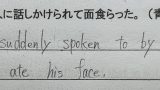 人に話しかけられて面食らった。(
suddenly spoken to by
ate his face.